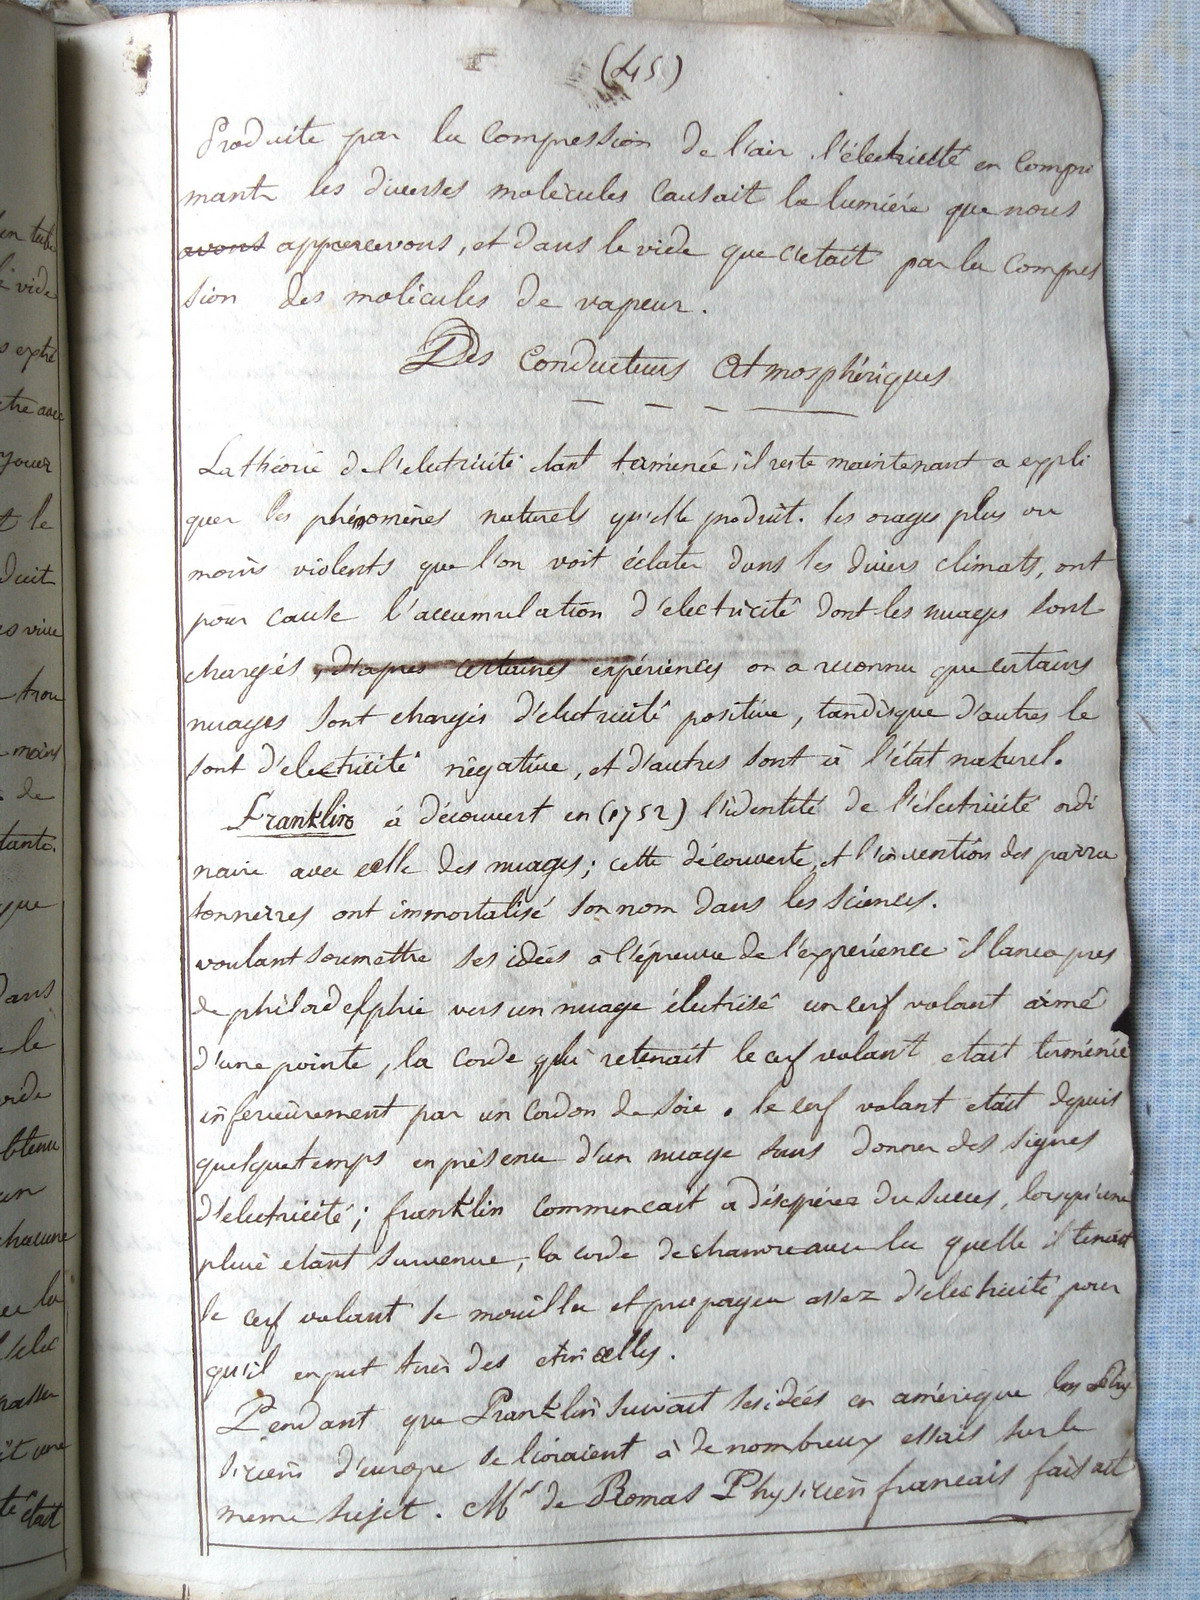 (45)
Produite par la compression de l'air, l'électricité en compri
mant les diverses molécules causait la lumiére que nous
avons appercevons, et dans le vide que c'etait par la compres
sion des molécules de vapeur.
Des Conducteurs Atmosphériques
La théorie de l'electricité étant términée, il reste maintenant a expli
quer les phénomènes naturels qu'elle produit. les orages plus ou
moins violents que l'on voit éclater dans les divers climats, ont
pour cause l'accumulation d'electricité dont les nuages sont
chargés, d'apres certaines expériences on a reconnu que certains
nuages sont chargés d'electricité positive, tandisque d'autres le
sont d'electricité négative, et d'autres sont à l'état naturel.
Franklin à découvert en (1752) l'identité de l'électricité ordi
naire avec celle des nuages; cette découverte, et l'invention des parra
tonnerres ont immortalisé son nom dans les sciences.
voulant soumettre ses idées à l'épreuve de l'expérience il lanca pres
de philadelphie vers un nuage électrisé un cerf volant armé
d'une pointe, la corde qui retenait le cerf volant etait terminée
inferieurement par un cordon de soie. le cerf volant etait depuis
quelquetemps en présence d'un nuage sans donner des signes
d'electricité; franklin commencait a déséspérer du succes, lorsqu'une
pluie etant survenue, la corde de chanvre avec la quelle il tenait
le cerf volant se mouilla et propagea assez d'electricité pour
qu'il en put tirer des etincelles.
Pendant que Franklin suivait ses idées en amérique les Phy
siciens d'europe se livraient à de nombreux essais sur le
meme sujet. Mr de Romas Physicien francais faisait